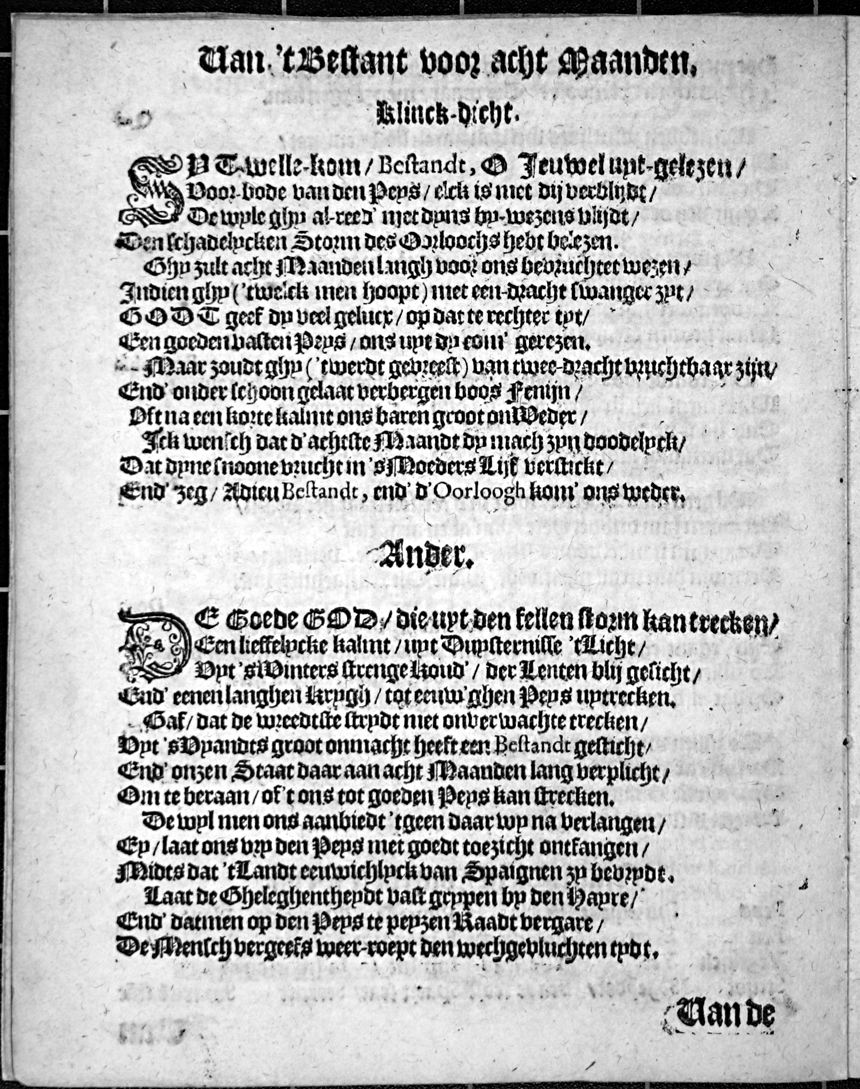 Van 't Bestant voor acht Maanden.
Klinck-dicht.
ZYT-welle-kom / Bestandt, O Jeuwel uyt-gelezen /
Voor-bode van den Peys / elck is met dij verblijdt /
De wyle ghy al-reed' met dyns by-wezens vlijdt /
Den schadelycken Storm des Oorloochs hebt belezen.
Ghy zult acht Maanden langh voor ons bevruchtet wezen /
Indien ghy ('twelck men hoopt) met een-dracht swanger zyt /
GODT geef dy veel gelucx / op dat te rechter tyt /
Een goeden vasten Peys / ons uyt dy com' gerezen.
Maar zoudt ghy ('twerdt gevreest) van twee-dracht vruchtbaar zijn /
End' onder schoon gelaat verbergen boos Fenijn /
Oft na een korte kalmt ons baren groot onWeder /
Ick wensch dat d'achtste Maandt dy mach zyn doodelyck /
Dat dyne snoone vrucht in 'sMoeders Lijf verstickt /
End' zeg / Adieu Bestandt, end' d'Oorloogh kom' ons weder.
Ander.
DE Goede GOD / die uyt den fellen storm kan trecken /
Een lieffelycke kalmt / uyt Duysternisse 'tLicht /
Uyt 'sWinters strenge koud' / der Lenten blij gesicht /
End' eenen langhen Krygh / tot eeuw'ghen Peys uytrecken.
Gaf / dat de wreedtste strydt met onverwachte trecken /
Uyt 'sVyandts groot onmacht heeft een Bestandt gesticht /
End' onzen Staat daar aan acht Maanden lang verplicht /
Om te beraan / of 't ons tot goeden Peys kan strecken.
De wyl men ons aanbiedt 'tgeen daar wy na verlangen /
Ey / laat ons vry den Peys met goedt toezicht ontfangen /
Midts dat 'tLandt eeuwichlyck van Spaignen zy bevrydt.
Laat de Gheleghentheydt vast grypen by den Hayre /
End' datmen op den Peys te peyzen Raadt vergare /
De Mensch vergeefs weer-roept den wechgevluchten tydt.
Van de